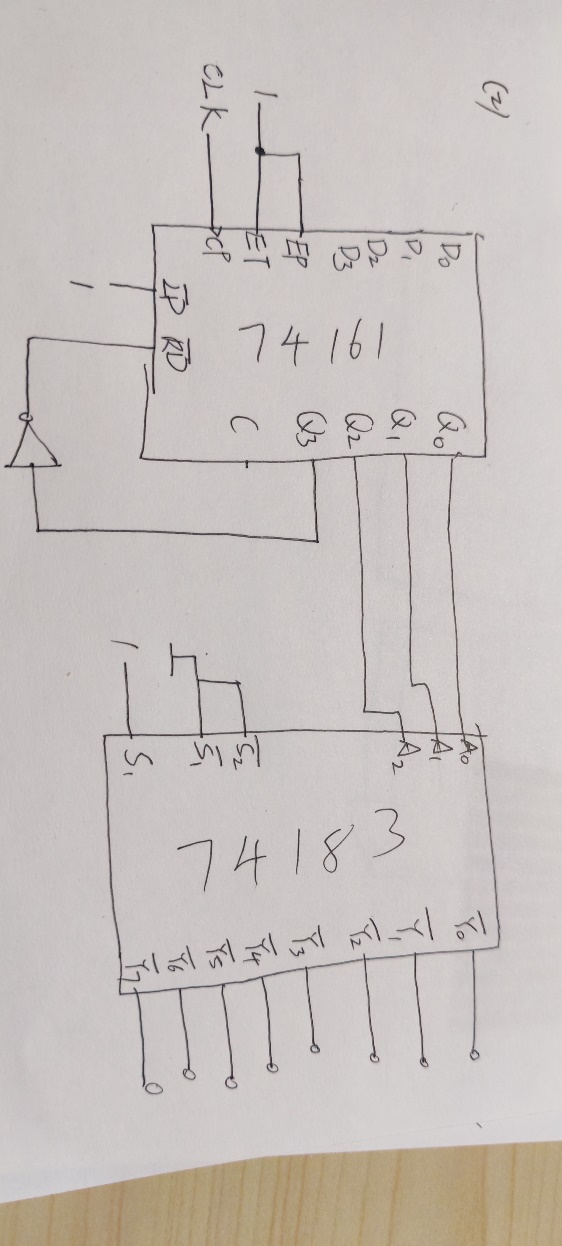 (2)
D₀
D₁
D₂
D₃
1
EP
ET
CLK
CP
74161
Q₀
Q₁
Q₂
Q₃
C
1
R̅D̅
A₀
A₁
A₂
S̅₂
S̅₁
1
S₁
74183
Y̅₀
Y̅₁
Y̅₂
Y̅₃
Y̅₄
Y̅₅
Y̅₆
Y̅₇